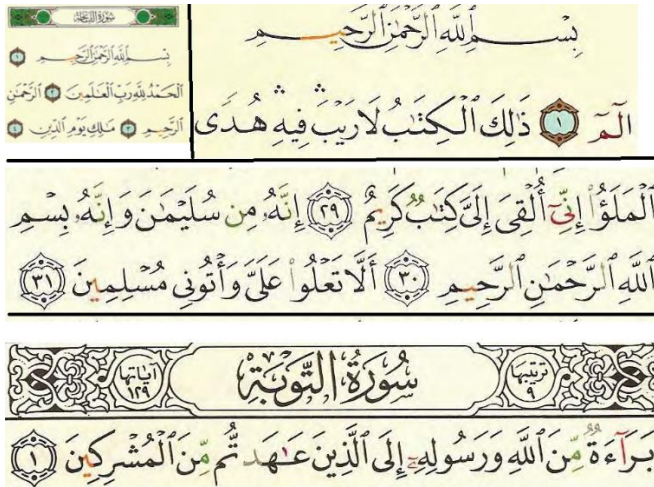 سُورَةُ الفَاتِحَةِ
بِسْمِ ٱللَّهِ ٱلرَّحْمَٰنِ ٱلرَّحِيمِ ١
ٱلْحَمْدُ لِلَّهِ رَبِّ ٱلْعَٰلَمِينَ ٢ ٱلرَّحْمَٰنِ
ٱلرَّحِيمِ ٣ مَٰلِكِ يَوْمِ ٱلدِّينِ ٤
بِسْمِ ٱللَّهِ ٱلرَّحْمَٰنِ ٱلرَّحِيمِ
الٓمٓ ١ ذَٰلِكَ ٱلْكِتَٰبُ لَا رَيْبَ فِيهِ هُدًى
ٱلْمَلَؤُا۟ إِنِّىٓ أُلْقِىَ إِلَىَّ كِتَٰبٌ كَرِيمٌ ٢٩ إِنَّهُۥ مِن سُلَيْمَٰنَ وَإِنَّهُۥ بِسْمِ
ٱللَّهِ ٱلرَّحْمَٰنِ ٱلرَّحِيمِ ٣٠ أَلَّا تَعْلُوا۟ عَلَىَّ وَأْتُونِى مُسْلِمِينَ ٣١
ترتيبها ٩ سُورَةُ التَّوْبَةِ آياتها ١٢٩
بَرَآءَةٌ مِّنَ ٱللَّهِ وَرَسُولِهِۦٓ إِلَى ٱلَّذِينَ عَٰهَدتُّم مِّنَ ٱلْمُشْرِكِينَ ١